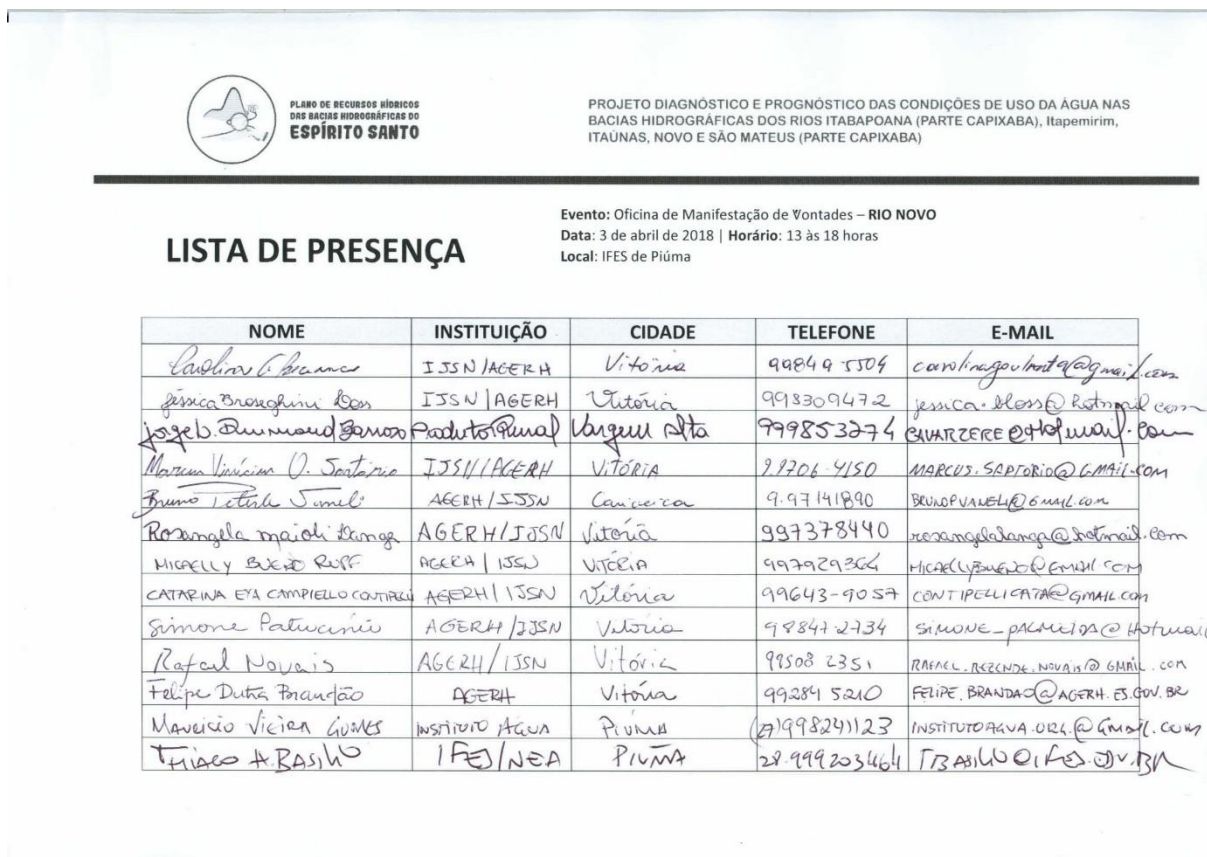 PLANO DE RECURSOS HÍDRICOS
DAS BACIAS HIDROGRÁFICAS DO
ESPÍRITO SANTO
PROJETO DIAGNÓSTICO E PROGNÓSTICO DAS CONDIÇÕES DE USO DA ÁGUA NAS
BACIAS HIDROGRÁFICAS DOS RIOS ITABAPOANA (PARTE CAPIXABA), Itapemirim,
ITAÚNAS, NOVO E SÃO MATEUS (PARTE CAPIXABA)
LISTA DE PRESENÇA
Evento: Oficina de Manifestação de Vontades – RIO NOVO
Data: 3 de abril de 2018 | Horário: 13 às 18 horas
Local: IFES de Piúma
NOME INSTITUIÇÃO CIDADE TELEFONE E-MAIL
Carolina IJSN/AGERH Vitória 99849 5504
Jéssica Broseghini IJSN/AGERH Vitória 998309472 jessica.bloss@hotmail.com
Jorge Produtor Rural Vargem Alta 999853274 CAVARZERE@Hotmail.com
Marcus Vinícius O. Sartório IJSN/AGERH VITÓRIA 9.9706-4150 MARCUS.SARTORIO@GMAIL.COM
Bruno AGERH/IJSN Cariacica 9.97141890 BRUNOPVANELI@GMAIL.COM
Rosangela maioli Langa AGERH/IJSN Vitória 997378440 rosangelalanga@hotmail.com
MICAELLY BUENO RUFF AGERH/IJSN VITÓRIA 997929364 MICAELLYBUENO@GMAIL.COM
CATARINA EYA CAMPIELLO CONTIPELLI AGERH/IJSN Vitória 99643-9057 CONTIPELLICATA@GMAIL.COM
Simone Patrocinio AGERH/IJSN Vitória 98847-2734 SIMONE_PALMEIDA@Hotmail
Rafael Novais AGERH/IJSN Vitória 99508 2351 RAFAEL.REZENDE.NOVAIS@GMAIL.COM
Felipe Dutra Brandão AGERH Vitória 99284 5210 FELIPE.BRANDAO@AGERH.ES.GOV.BR
MAURICIO VIEIRA GOMES INSTITUTO ÁGUA PIÚMA 998241123 INSTITUTOAGUA.ORG.@GMAIL.COM
THIAGO H. BASILIO IFES/NEA PIÚMA 28.999203464 TBASILIO@IFES.EDU.BR